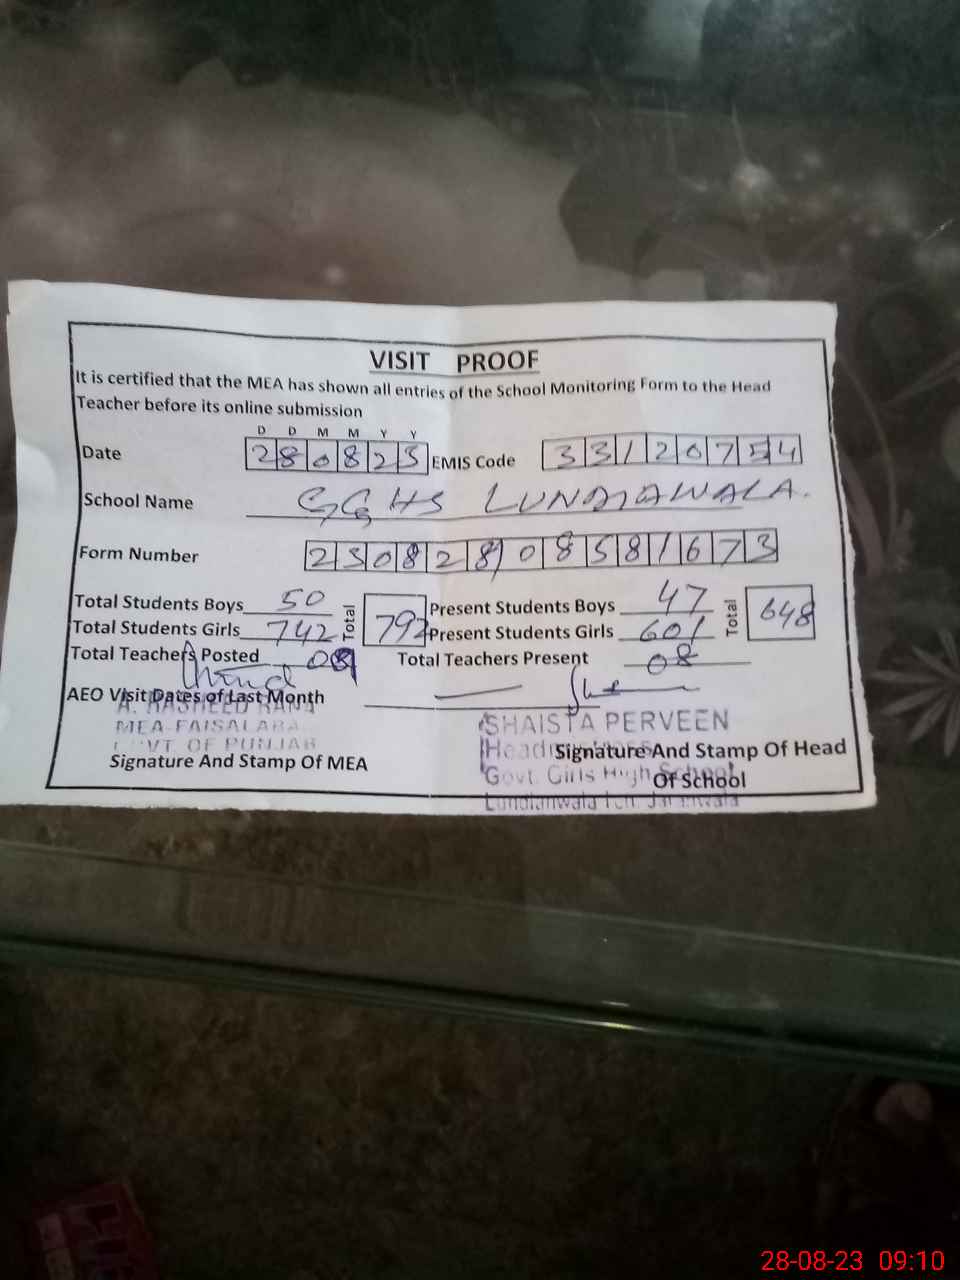 VISIT PROOF
It is certified that the MEA has shown all entries of the School Monitoring Form to the Head
Teacher before its online submission
D D M M Y Y
Date 280823 EMIS Code 33120754
School Name GGHS LUNDIAWALA.
Form Number 23082808581673
Total Students Boys 50 Total 792 Present Students Boys 47 Total 648
Total Students Girls 742 Present Students Girls 601
Total Teachers Posted 08 Total Teachers Present 08
AEO Visit Dates of Last Month —
A. RASHEED RANA
MEA FAISALABA
GOVT. OF PUNJAB
Signature And Stamp Of MEA
SHAISTA PERVEEN
Signature And Stamp Of Head
Govt. Girls High School
Of School
Lundianwala Teh. Jaranwala
28-08-23 09:10